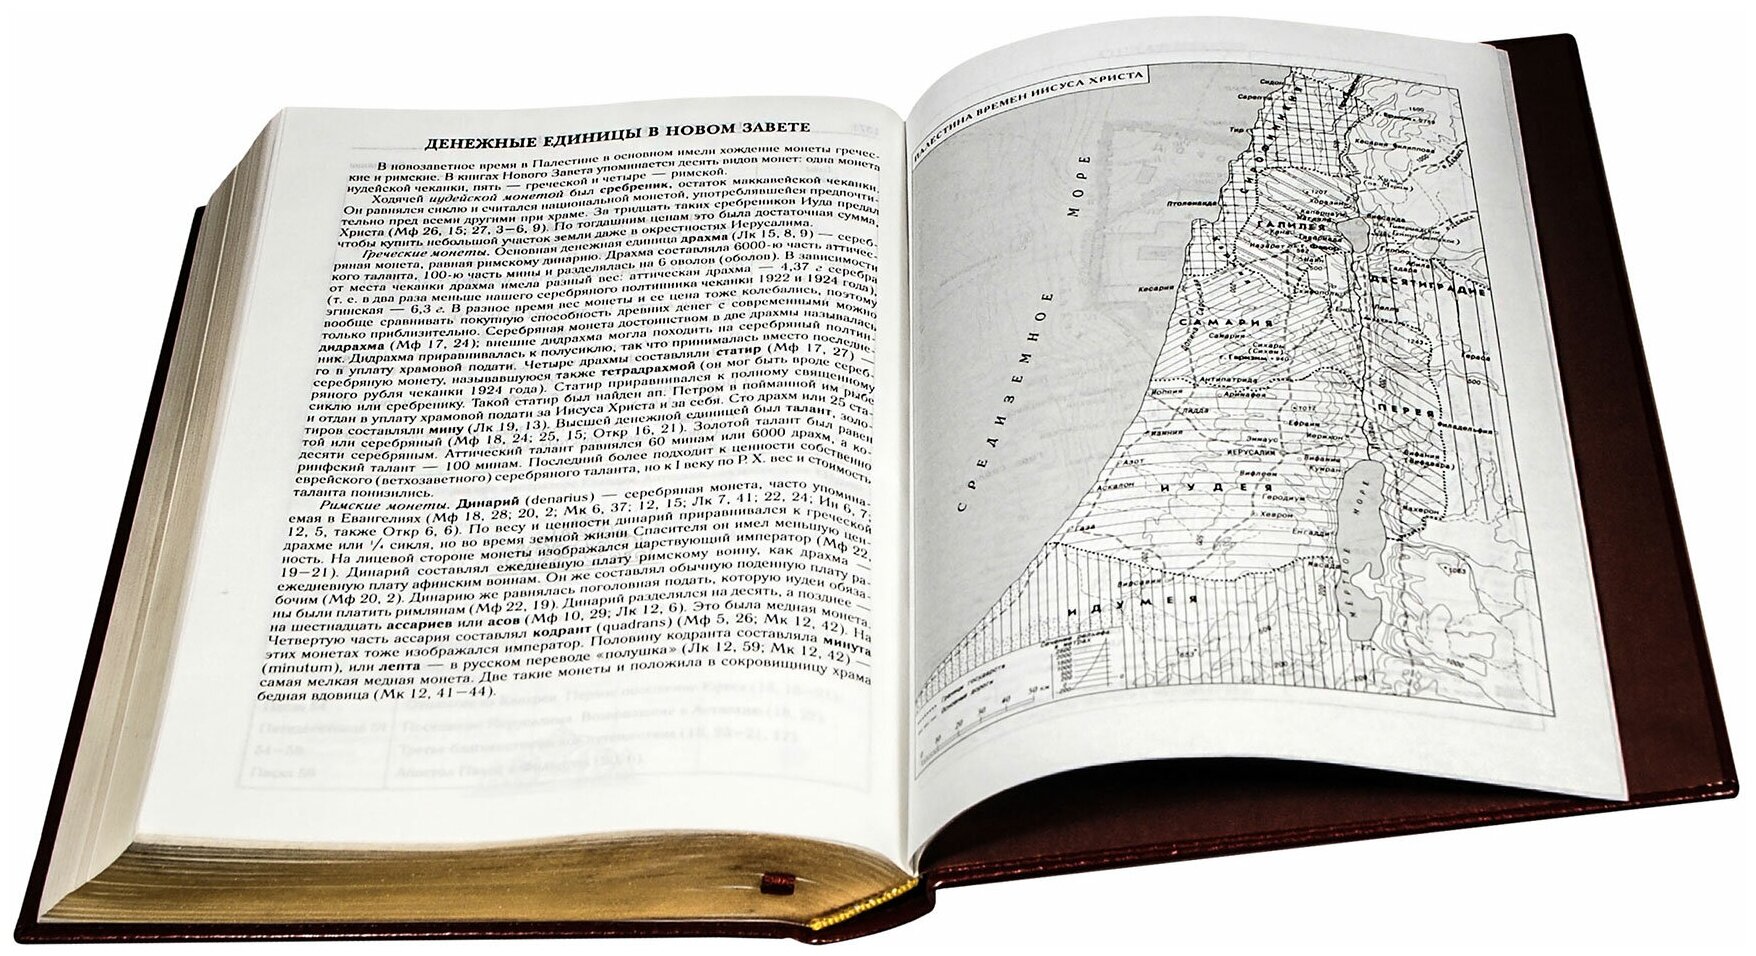 ДЕНЕЖНЫЕ ЕДИНИЦЫ В НОВОМ ЗАВЕТЕ
В новозаветное время в Палестине в основном имели хождение монеты гречес-
кие и римские. В книгах Нового Завета упоминается десять видов монет: одна монета
иудейской чеканки, пять — греческой и четыре — римской.
Ходячей иудейской монетой был сребреник, остаток маккавейской чеканки.
Он равнялся сиклю и считался национальной монетой, употреблявшейся предпочти-
тельно пред всеми другими при храме. За тридцать таких сребреников Иуда предал
Христа (Мф 26, 15; 27, 3—6, 9). По тогдашним ценам это была достаточная сумма,
чтобы купить небольшой участок земли даже в окрестностях Иерусалима.
Греческие монеты. Основная денежная единица драхма (Лк 15, 8, 9) — сереб-
ряная монета, равная римскому динарию. Драхма составляла 6000-ю часть аттичес-
кого таланта, 100-ю часть мины и разделялась на 6 оволов (оболов). В зависимости
от места чеканки драхма имела разный вес: аттическая драхма — 4,37 г серебра
(т. е. в два раза меньше нашего серебряного полтинника чеканки 1922 и 1924 года),
эгинская — 6,3 г. В разное время вес монеты и ее цена тоже колебались, поэтому
вообще сравнивать покупную способность древних денег с современными можно
только приблизительно. Серебряная монета достоинством в две драхмы называлась
дидрахма (Мф 17, 24); внешне дидрахма могла походить на серебряный полтин-
ник. Дидрахма приравнивалась к полусиклю, так что принималась вместо последне-
го в уплату храмовой подати. Четыре драхмы составляли статир (Мф 17, 27) —
серебряную монету, называвшуюся также тетрадрахмой (он мог быть вроде сереб-
ряного рубля чеканки 1924 года). Статир приравнивался к полному священному
сиклю или сребренику. Такой статир был найден ап. Петром в пойманной им рыбе
и отдан в уплату храмовой подати за Иисуса Христа и за себя. Сто драхм или 25 ста-
тиров составляли мину (Лк 19, 13). Высшей денежной единицей был талант, золо-
той или серебряный (Мф 18, 24; 25, 15; Откр 16, 21). Золотой талант был равен
десяти серебряным. Аттический талант равнялся 60 минам или 6000 драхм, а ко-
ринфский талант — 100 минам. Последний более подходит к ценности собственно
еврейского (ветхозаветного) серебряного таланта, но к I веку по Р. Х. вес и стоимость
таланта понизились.
Римские монеты. Динарий (denarius) — серебряная монета, часто упомина-
емая в Евангелиях (Мф 18, 28; 20, 2; Мк 6, 37; 12, 15; Лк 7, 41; 22, 24; Ин 6, 7;
12, 5, также Откр 6, 6). По весу и ценности динарий приравнивался к греческой
драхме или ¼ сикля, но во время земной жизни Спасителя он имел меньшую цен-
ность. На лицевой стороне монеты изображался царствующий император (Мф 22,
19—21). Динарий составлял ежедневную плату римскому воину, как драхма —
ежедневную плату афинским воинам. Он же составлял обычную поденную плату ра-
бочим (Мф 20, 2). Динарию же равнялась поголовная подать, которую иудеи обяза-
ны были платить римлянам (Мф 22, 19). Динарий разделялся на десять, а позднее —
на шестнадцать ассариев или асов (Мф 10, 29; Лк 12, 6). Это была медная монета.
Четвертую часть ассария составлял кодрант (quadrans) (Мф 5, 26; Мк 12, 42). На
этих монетах тоже изображался император. Половину кодранта составляла минута
(minutum), или лепта — в русском переводе «полушка» (Лк 12, 59; Мк 12, 42) —
самая мелкая медная монета. Две такие монеты и положила в сокровищницу храма
бедная вдовица (Мк 12, 41—44).
ПАЛЕСТИНА ВРЕМЕН ИИСУСА ХРИСТА
Сидон
Сарепта
Тир
Кесария Филиппова
СИРОФИНИКИЯ
СРЕДИЗЕМНОЕ МОРЕ
Птолемаида
1207
Хоразин
Капернаум
Вифсаида
ГАЛИЛЕЯ
Назарет
Наин
Кесария
ДЕСЯТИГРАДИЕ
Пелла
САМАРИЯ
Самария
Сихарь
(Сихем)
г. Гаризим
Гераса
Антипатрида
Иоппия
Аримафея
Лидда
1017
Ефраим
ПЕРЕЯ
Филадельфия
Иамния
Эммаус
Иерихон
ИЕРУСАЛИМ
Вифания
Вифания
(Вифавара)
Азот
Вифлеем
Кумран
Аскалон
ИУДЕЯ
Геродиум
Хеврон
Махерон
Газа
Енгадди
Масада
МЕРТВОЕ МОРЕ
Вирсавия
ИДУМЕЯ
1063
Границы государств
Основные дороги
0 10 20 30 40 50 км